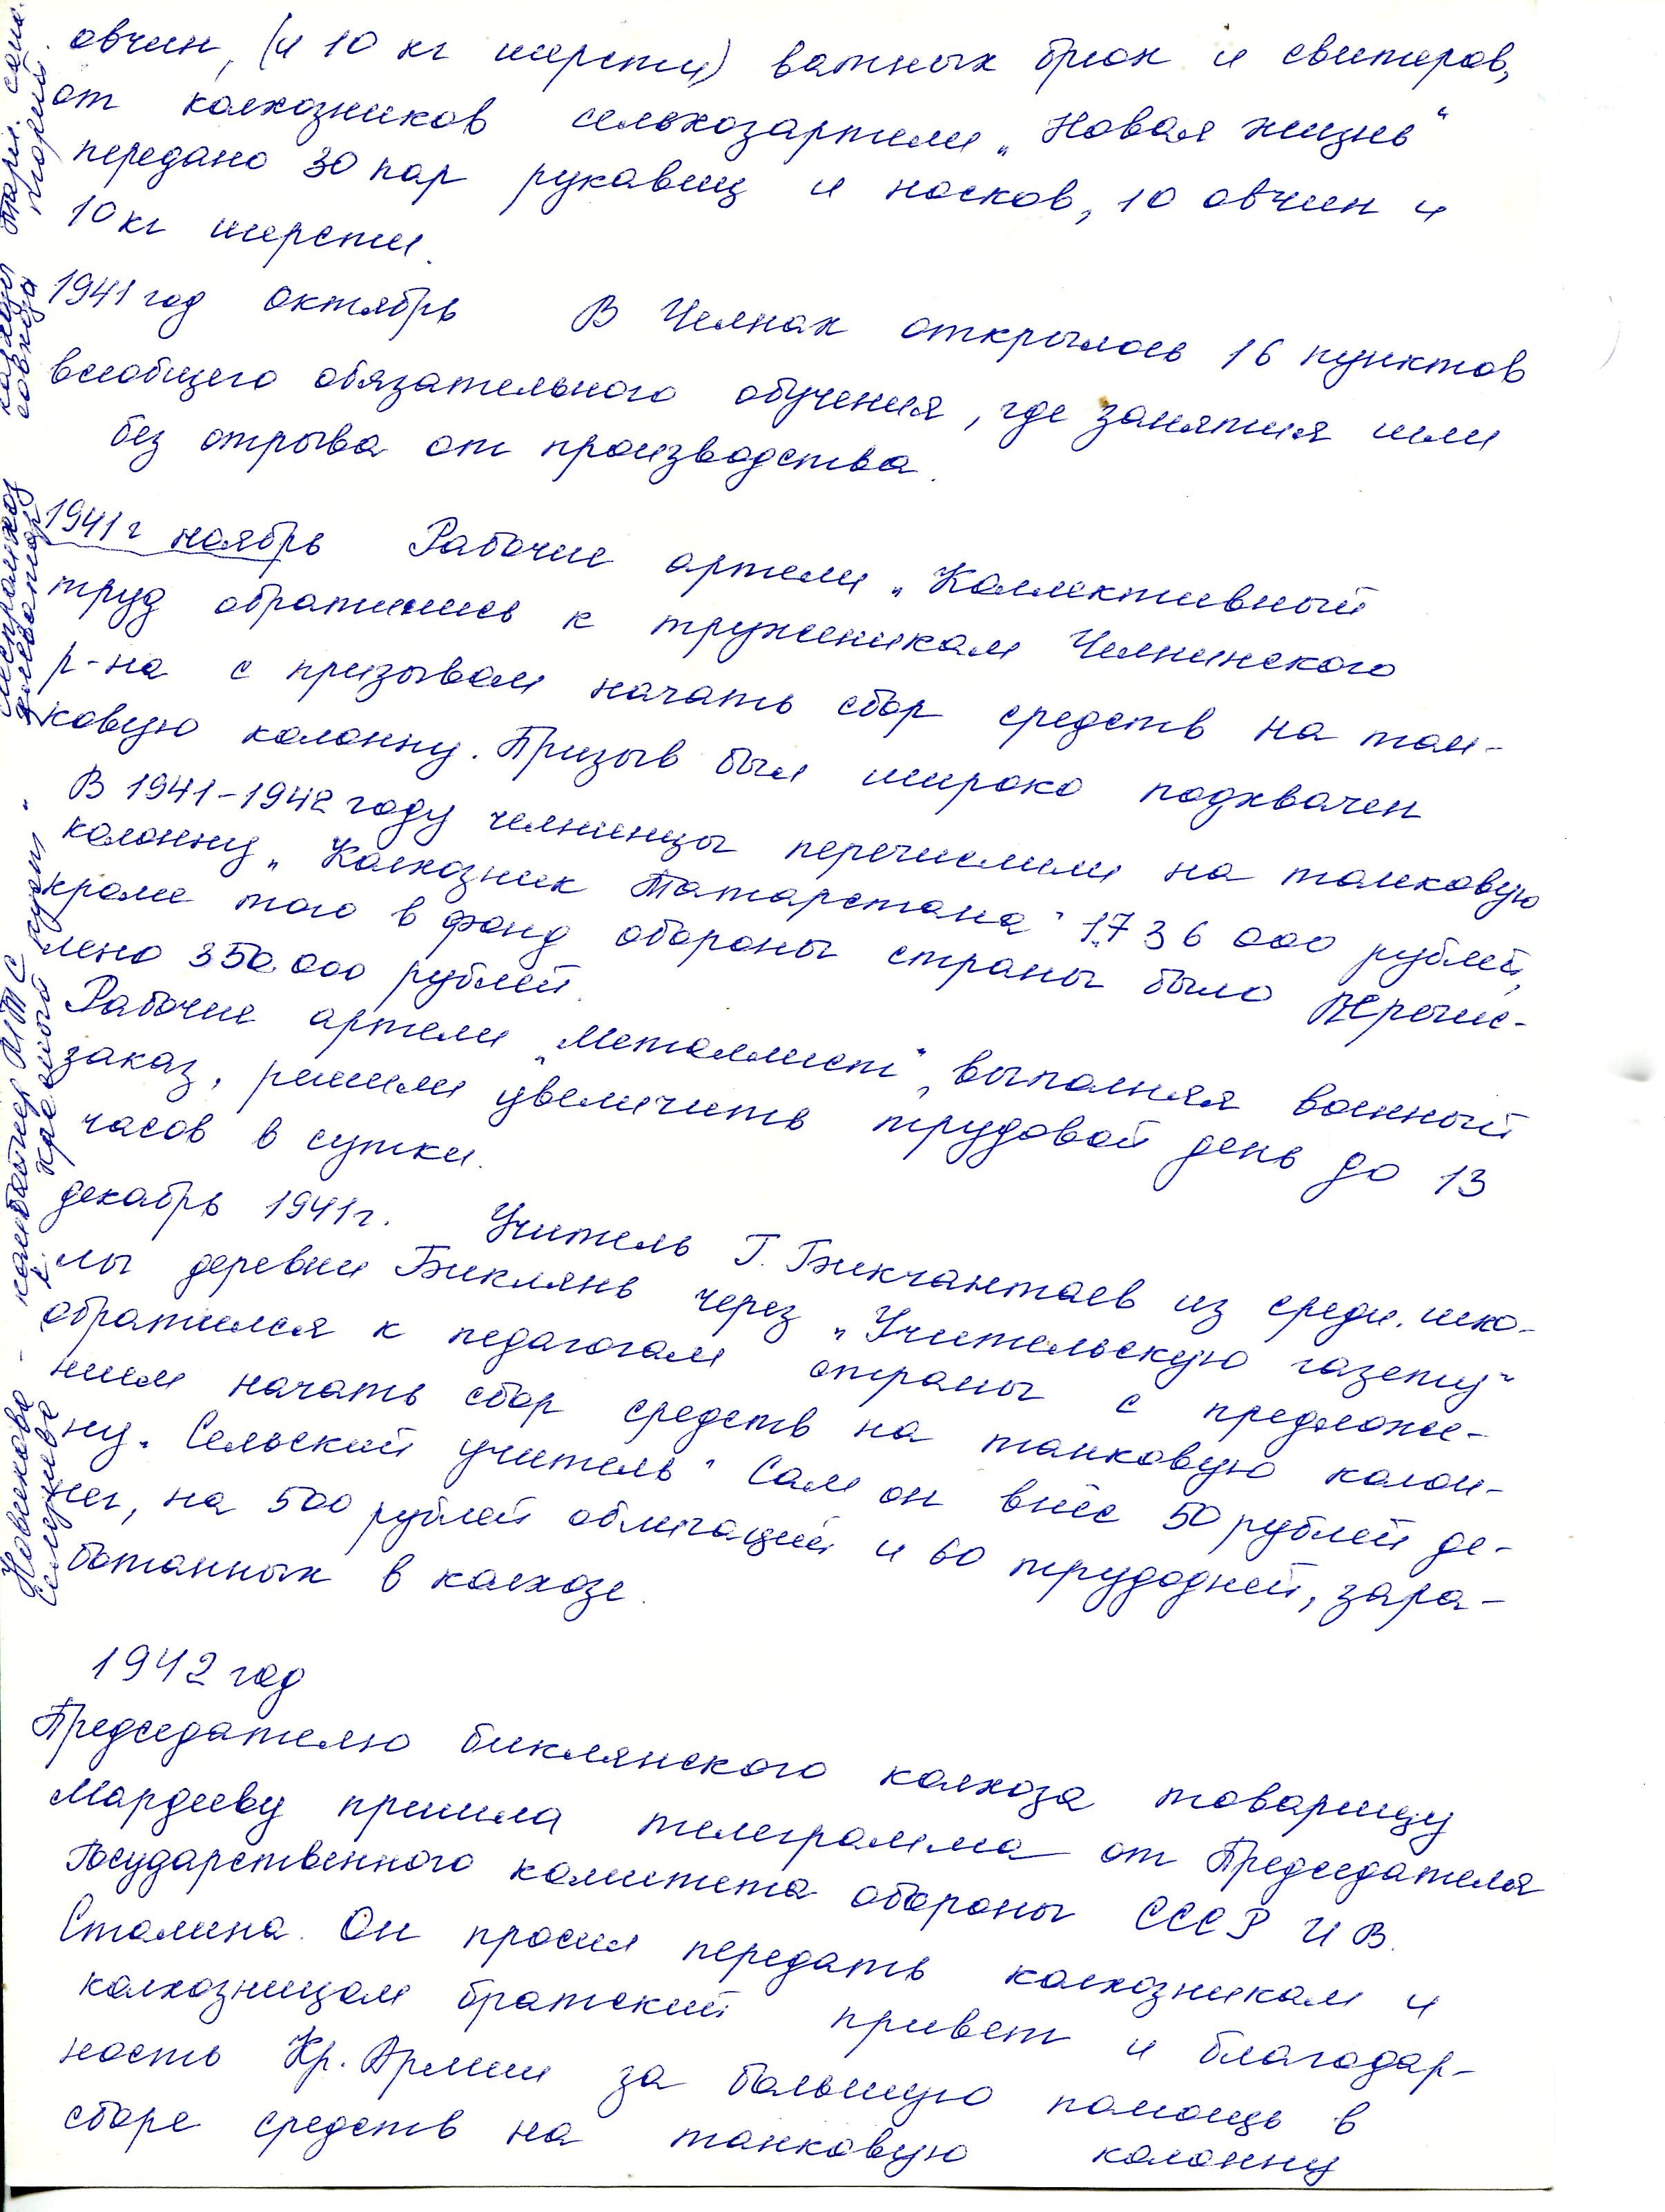 овчин, (и 10 кг шерсти) ватных брюк и свитеров,
от колхозников сельхозартели „Новая жизнь“
передано 30 пар рукавиц и носков, 10 овчин и
10 кг шерсти.
1941 год октябрь В Челнах открылось 16 пунктов
всеобщего обязательного обучения, где занятия шли
без отрыва от производства.
1941 г ноябрь Рабочие артели „Коллективный
труд обратились к труженикам Челнинского
р-на с призывом начать сбор средств на тан-
ковую колонну. Призыв был широко подхвачен
В 1941-1942 году челнинцы перечислили на танковую
колонну „Колхозник Татарстана“ 1.736 000 рублей,
кроме того в фонд обороны страны было перечис-
лено 350.000 рублей.
Рабочие артели „Металлист“, выполняя военный
заказ, решили увеличить трудовой день до 13
часов в сутки.
декабрь 1941г. Учитель Г. Бикчантаев из средн. шко-
лы деревни Биклянь через „Учительскую газету“
обратился к педагогам страны с предложе-
нием начать сбор средств на танковую колон-
ну „Сельский учитель“ Сам он внёс 50 рублей де-
нег, на 500 рублей облигаций и 60 трудодней, зара-
ботанных в колхозе.
1942 год
Председателю биклянского колхоза товарищу
Мардееву пришла телеграмма от Председателя
Государственного комитета обороны СССР И В.
Сталина. Он просил передать колхозникам и
колхозницам братский привет и благодар-
ность Кр. Армии за большую помощь в
сборе средств на танковую колонну
Новикова - комбайнер МТС